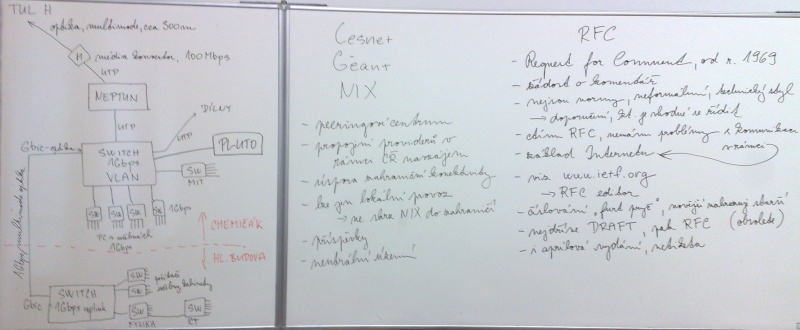 TUL H
optika, multimode, cca 300m
H média konvertor, 100Mbps
UTP
NEPTUN
UTP
DÍLNY
UTP
Gbic-optika
SWITCH
1Gbps
VLAN
PLUTO
SW
MIT
SW SW SW SW 1Gbps
PC v učebnách
1Gbps
CHEMIČÁK
HL. BUDOVA
1Gbps, multimode optika
Gbic
SWITCH
1Gbps uplink
SW
SW
počítače
SW
SW
FYZIKA
RT
Cesnet
Géant
NIX
- peeringové centrum
- propojení providerů v
rámci ČR navzájem
- úspora zahraniční konektivity
- lze jen lokální provoz
→ ne skrz NIX do zahraničí
- příspěvky
- neutrální území
RFC
- Request for Comment, od r. 1969
- žádost o komentář
- nejsou normy, neformální, technický styl
→ doporučení, je vhodné se řídit
- ctím RFC, nemám problémy s komunikací
v rámci
- základ Internetu
- via www.ietf.org
→ RFC editor
- číslování „furt pryč“, novější nahrazují starší
(obsolete)
- nejdříve DRAFT, pak RFC
- i aprílová vydání,